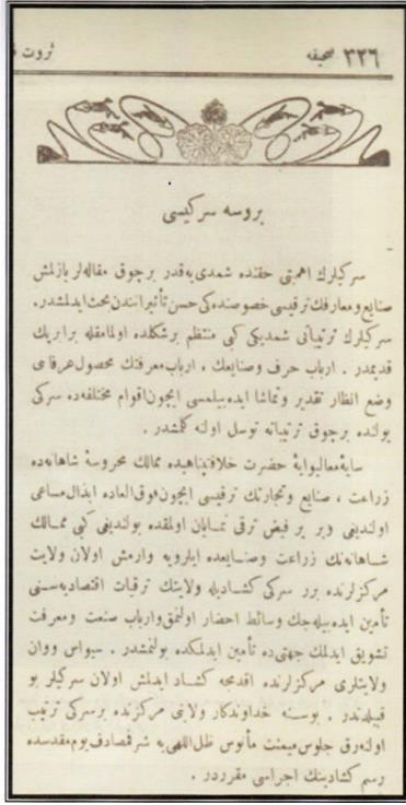 ٣٢٦ صحيفه
ثروت
بروسه سركيسى
سركيلرك اهميتى حقنده شمدى‌يه‌قدر برچوق مقاله‌لر يازلمش
صنايع ومعارفك ترقيسى خصوصنده‌كى حسن تأثيراتندن بحث ايدلمشدر.
سركيلرك ترتيباتى شمديكى كبى منتظم برشكلده اولمامقله برابر پك
قديمدر . ارباب حرف وصنايعك ، ارباب معرفتك محصول عرفانى
وضع انظار تقدير وتماشا ايده‌بيلمسى ايچون اقوام مختلفه‌ده سركى
يولنده برچوق ترتيباته توسل اولنه كلمشدر .
سايهٔ معاليوايهٔ حضرت خلافتپناهيده ممالك محروسهٔ شاهانه‌ده
زراعت ، صنايع وتجارتك ترقيسى ايچون فوق العاده ابذال مساعى
اولنديغى وير بر فيض ترقى نمايان اولمقده بولنديغى كبى ممالك
شاهانه‌نك زراعت وصنايعده ايلرويه وارمش اولان ولايت
مركزلرنده برر سركى كشاديله ولايتك ترقيات اقتصاديه‌سنى
تأمين ايده‌بيله‌جك وسائط احضار اولنمق وارباب صنعت ومعرفت
تشويق ايدلمك جهتى‌ده تأمين ايدلمكده بولنمشدر . سيواس ووان
ولايتلرى مركزلرنده اقدمجه كشاد ايدلمش اولان سركيلر بو
قبيلدندر . بوسنه خداوندكار ولايتى مركزنده برسركى ترتيب
اولنه‌رق جلوس ميمنت مأنوس ظل اللهى‌يه شرفمصادف يوم مقدسده
رسم كشادينك اجراسى مقرردر .